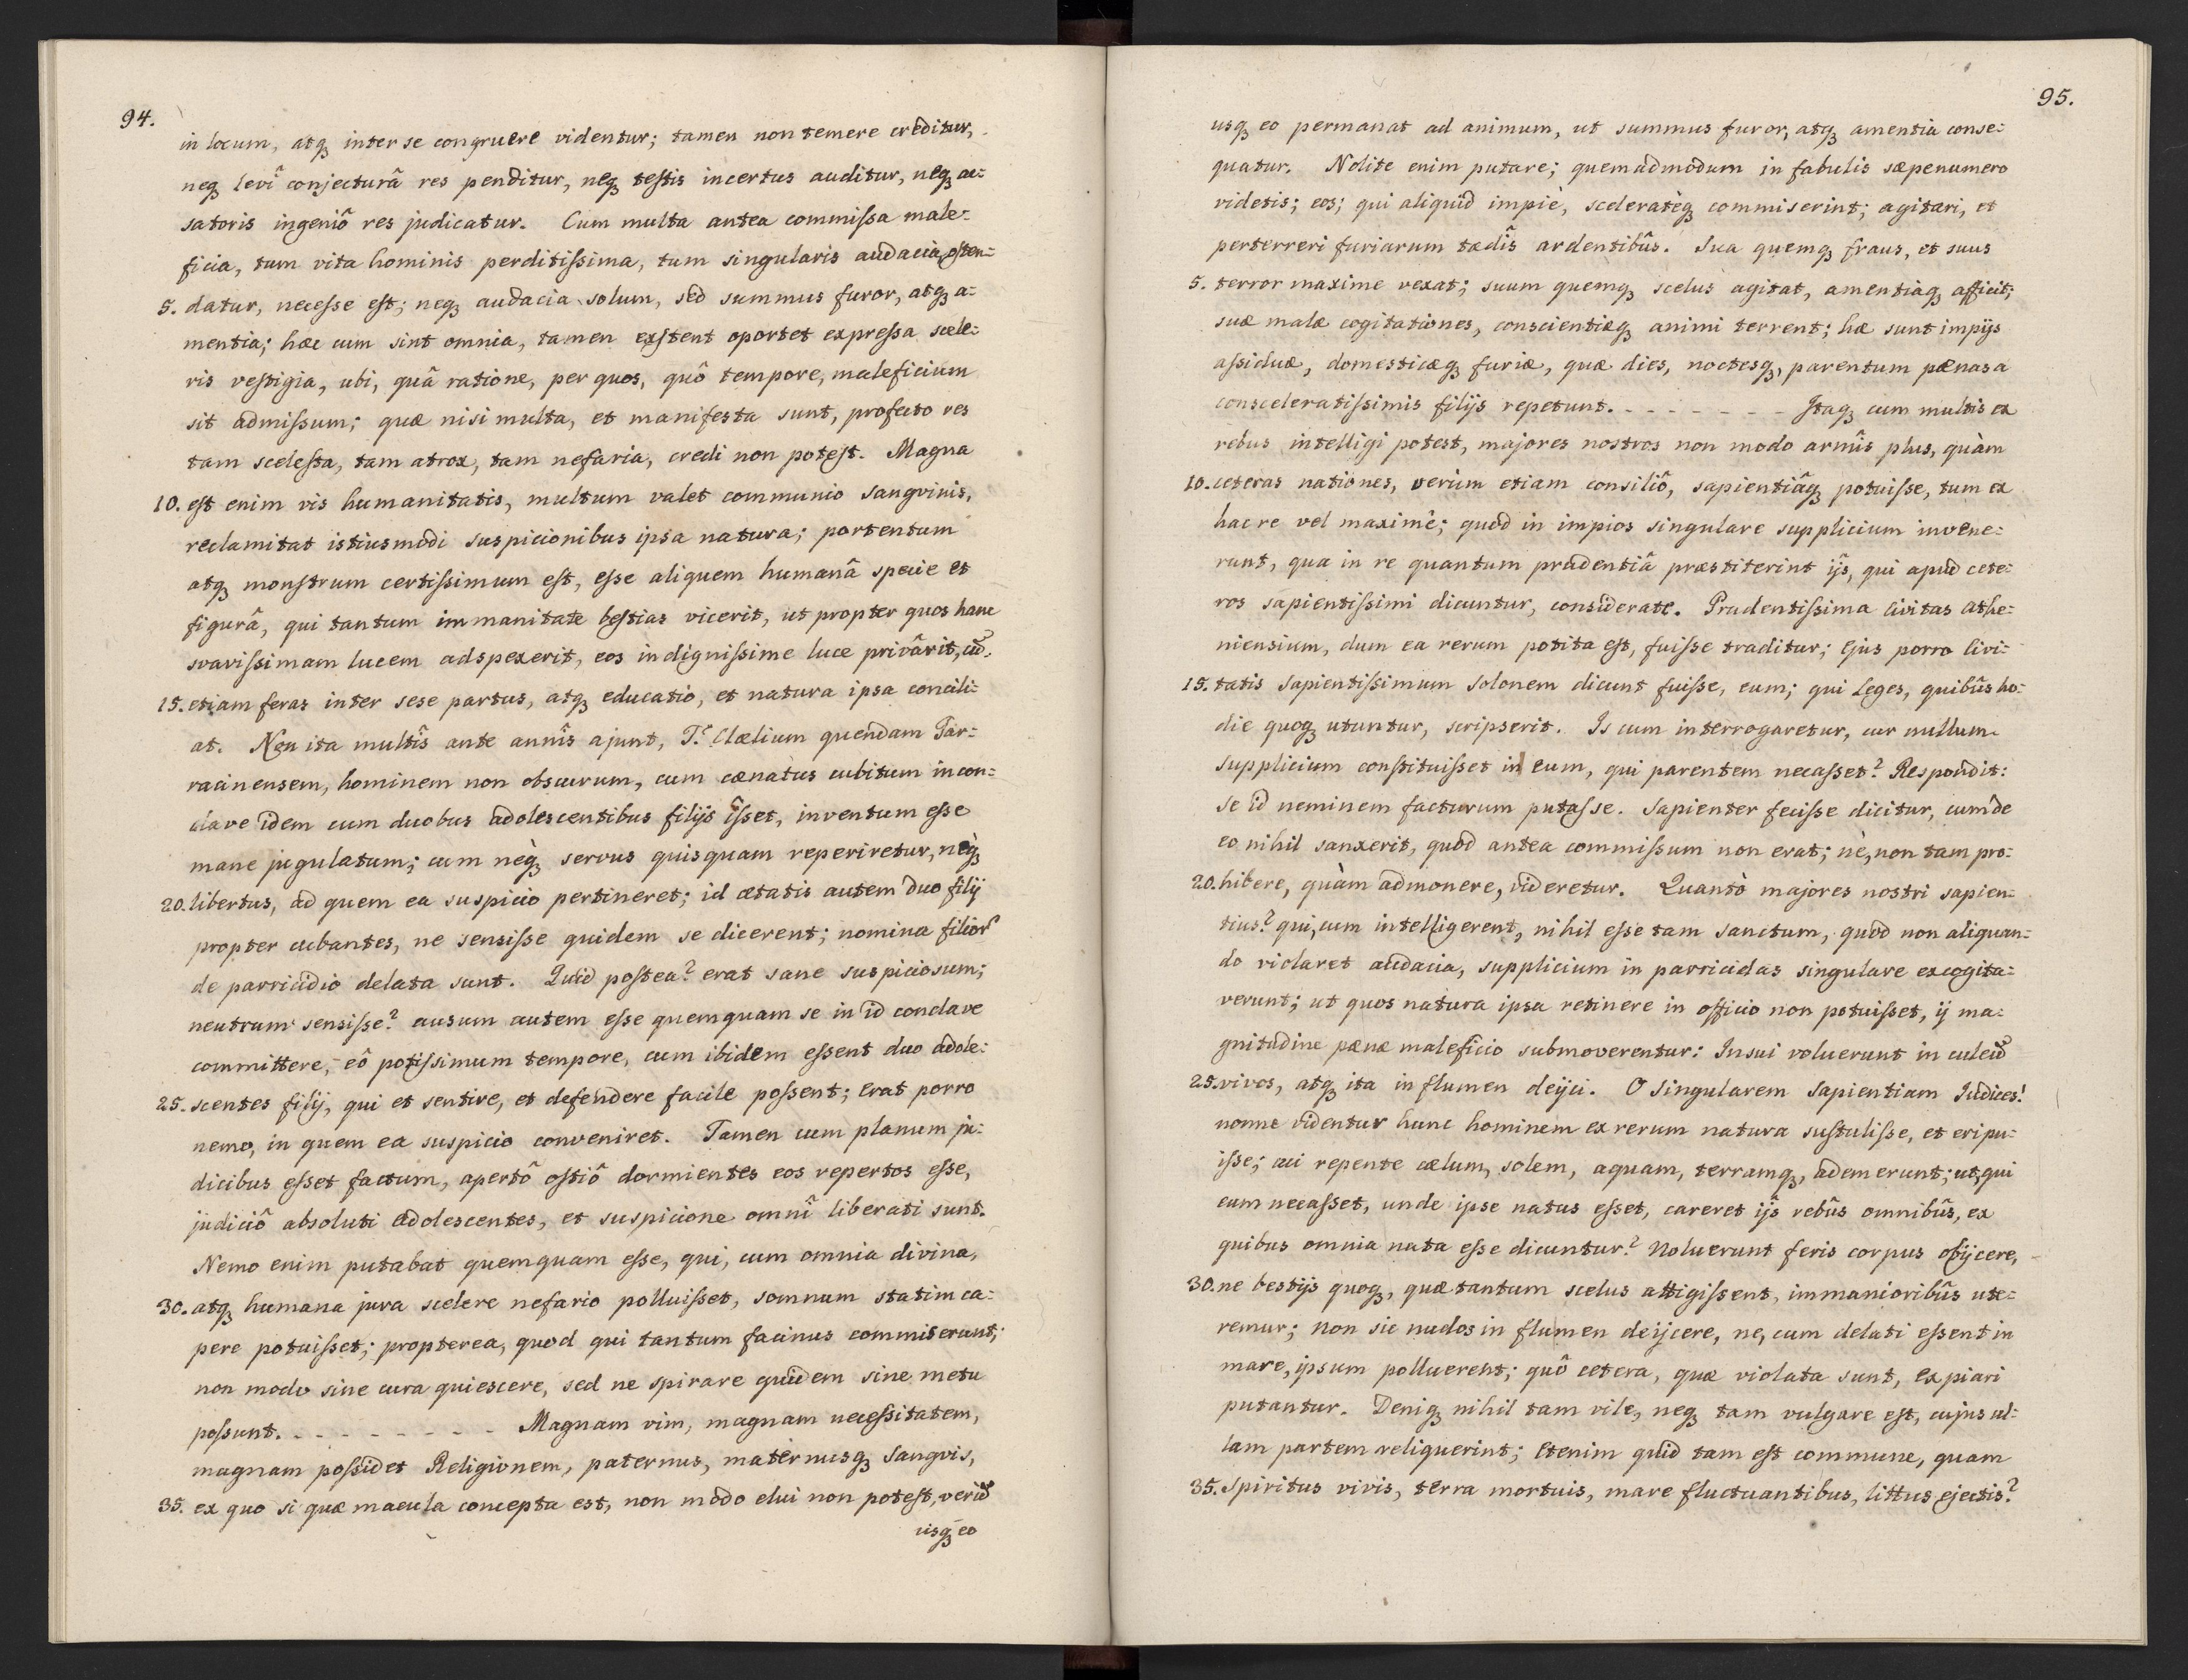 94.
in locum, atq̃ inter se congruere videntur; tamen non temere creditur,
neq̃ levî conjecturâ res penditur, neq̃ testis incertus auditur, neq̃ ac=
satoris ingeniô res judicatur. Cum multa antea commissa male=
ficia, tum vita hominis perditissima, tum singularis audacia, osten=
5. datur, necesse est; neq̃ audacia solum, sed summus furor, atq̃ a=
mentia; hæc cum sint omnia, tamen exstent oportet expressa scele=
ris vestigia, ubi, quâ ratione, per quos, quô tempore, maleficium
sit admissum; quæ nisi multa, et manifesta sunt, profecto res
tam scelesta, tam atrox, tam nefaria, credi non potest. Magna
10. est enim vis humanitatis, multum valet communio sangvinis,
reclamitat istiusmodi suspicionibus ipsa natura; portentum
atq̃ monstrum certissimum est, esse aliquem humanâ specie et
figurâ, qui tantum immanitate bestias vicerit, ut propter quos hanc
svavissimam lucem adspexerit, eos indignissime luce privârit, cũ
15. etiam feras inter sese partus, atq̃ educatio, et natura ipsa concili=
at. Non ita multîs ante annîs ajunt, T. Clælium quendam Tar=
racinensem, hominem non obscurum, cum cænatus cubitum in con=
clave idem cum duobus adolescentibus filijs îsset, inventum esse
mane jugulatum; cum nèq̃ servus quisquam reperiretur, nèq̃
20. libertus, ad quem ea suspicio pertineret; id ætatis autem duo filij
propter cubantes, ne sensisse quidem se dicerent; nomina filior̃
de parricidio delata sunt. Quid postea? erat sane suspiciosum;
neutrum sensisse? ausum autem esse quemquam se in id conclave
committere, eô potissimum tempore, cum ibidem essent duo adole=
25. scentes filij, qui et sentire, et defendere facile possent; erat porro
nemo, in quem ea suspicio conveniret. Tamen cum planum ju=
dicibus esset factum, apertô ostiô dormientes eos repertos esse,
judiciô absoluti adolescentes, et suspicione omnî liberati sunt.
Nemo enim putabat quemquam esse, qui, cum omnia divina,
30. atq̃ humana jura scelere nefario polluisset, somnum statim ca=
pere potuisset; propterea, quod qui tantum facinus commiserunt,
non modo sine cura quiescere, sed ne spirare quidem sine metu
possunt. - - - - - - - - - Magnam vim, magnam necessitatem,
magnam possidet Religionem, paternus, maternusq̃ sangvis,
35. ex quo si quæ macula concepta est, non modo elui non potest, verũ
usq̃ eo
95.
usq̃ eo permanat ad animum, ut summus furor, atq̃ amentia conse=
quatur. Nolite enim putare; quemadmodum in fabulis sæpenumero
videtis; eos; qui aliquid impiè, sceleratèq̃ commiserint; agitari, et
perterreri furiarum tædîs ardentibûs. Sua quemq̃ fraus, et suus
5. terror maxime vexat; suum quemq̃ scelus agitat, amentiâq̃ afficit;
suæ malæ cogitationes, conscientiæq̃ animi terrent; hæ sunt impijs
assiduæ, domesticæq̃ furiæ, quæ dies, noctesq̃, parentum pænas a
consceleratissimis filijs repetunt. - - - - - - - Itaq̃ cum multis ex
rebus intelligi potest, majores nostros non modo armîs plus, quàm
10. ceteras nationes, verùm etiam consiliô, sapientiâq̃ potuisse, tum ex
hac re vel maximê; quòd in impios singulare supplicium invene=
runt, qua in re quantum prudentiâ præstiterint ijs, qui apud cete=
ros sapientissimi dicuntur, considerate. Prudentissima civitas athe=
niensium, dum ea rerum potita est, fuisse traditur; Ejus porro civi=
15. tatis sapientissimum Solonem dicunt fuisse, eum; qui Leges, quibûs ho=
die quoq̃ utuntur, scripserit. Is cum interrogaretur, cur nullum
supplicium constituisset in eum, qui parentem necasset? Respondit:
se id neminem facturum putasse. Sapienter fecisse dicitur, cum de
eo nihil sanxerit, quòd antea commissum non erat; nè, non tam pro=
20. hibere, quàm admonere, videretur. Quantò majores nostri sapien=
tius? qui, cum intelligerent, nihil esse tam sanctum, quòd non aliquan=
do violaret audacia, supplicium in parricidas singulare excogita=
verunt; ut quos natura ipsa retinere in officio non potuisset, ij ma=
gnitudine pænæ maleficio submoverentur: Insui voluerunt in culeũ
25. vivos, atq̃ ita in flumen deijci. O singularem sapientiam Judices!
nonne videntur hunc hominem ex rerum natura sustulisse, et eripu=
isse; cui repente cælum, solem, aquam, terramq̃, ademerunt; ut, qui
eum necasset, unde ipse natus esset, careret ijs rebûs omnibûs, ex
quibus omnia nata esse dicuntur? Noluerunt feris corpus objicere,
30. ne bestijs quoq̃, quæ tantum scelus attigissent, immanioribûs ute=
remur; non sic nudos in flumen deijcere, ne, cum delati essent in
mare, ipsum polluerent; quô cetera, quæ violata sunt, expiari
putantur. Deniq̃ nihil tam vile, neq̃ tam vulgare est, cujus ul=
lam partem reliquerint; Etenim quid tam est commune, quam
35. spiritus vivis, terra mortuis, mare fluctuantibus, littus ejectis?